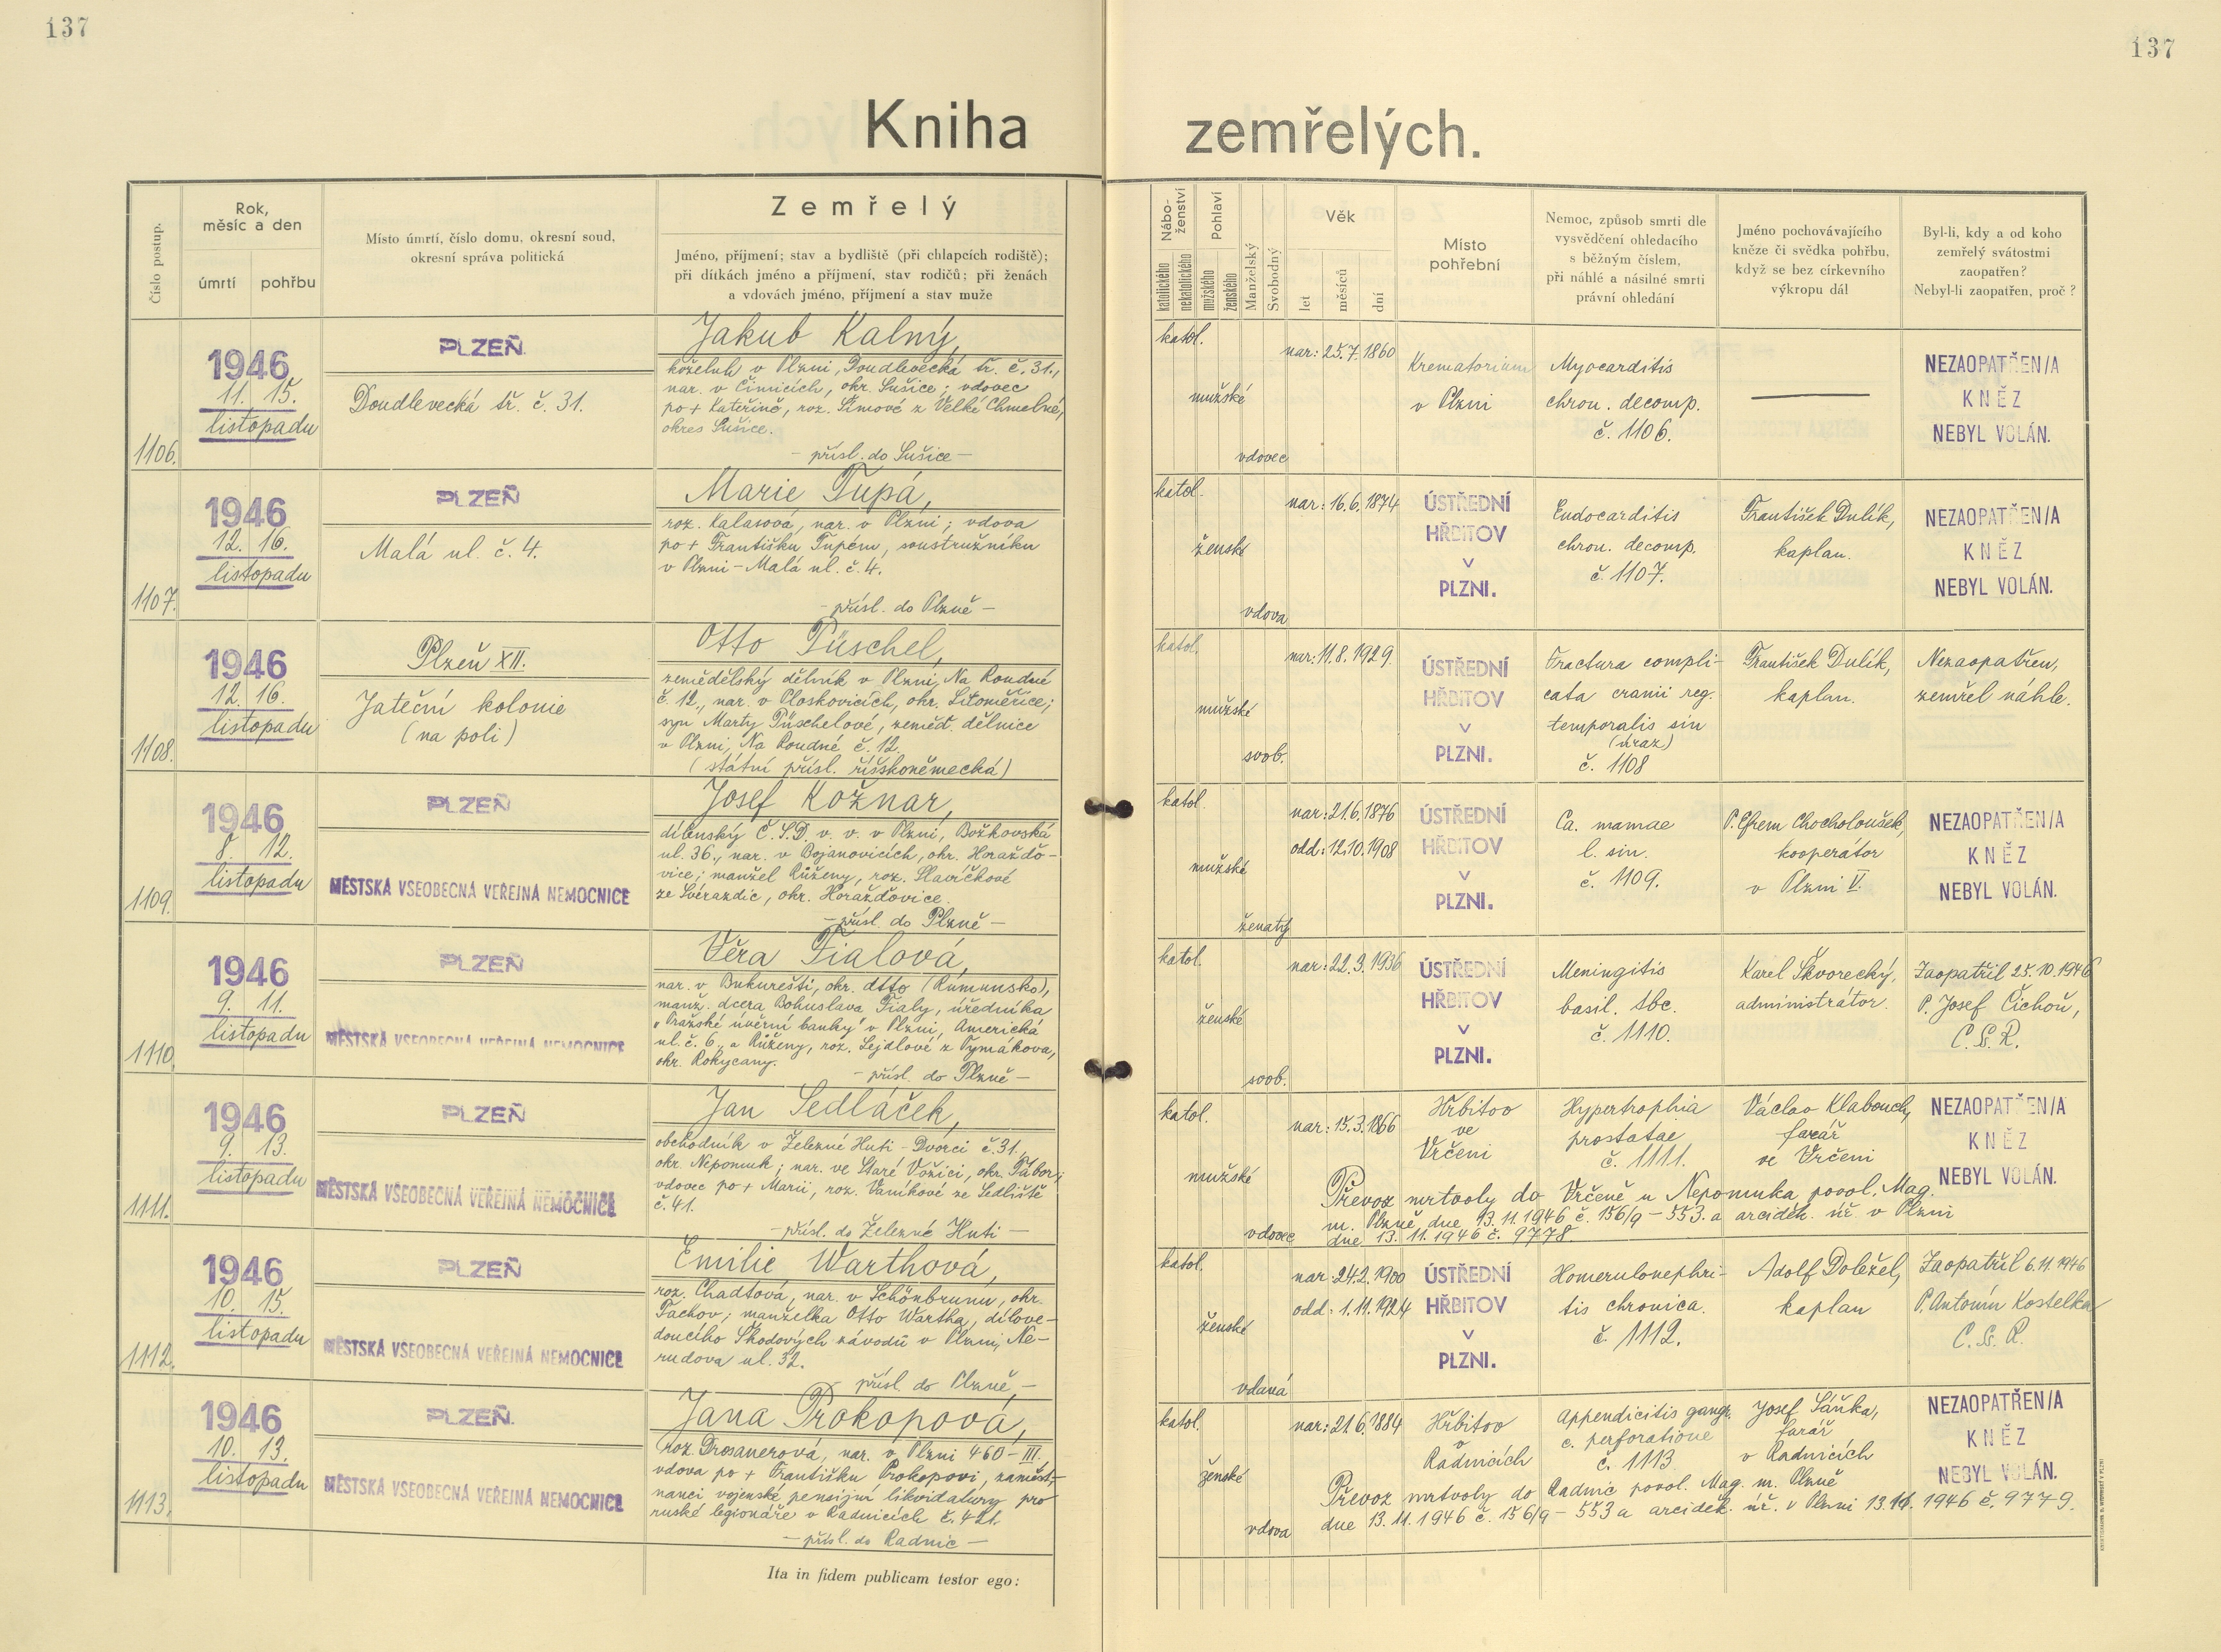 137
137
Kniha zemřelých.
Číslo postup.
Rok,
měsíc a den
úmrtí
pohřbu
Místo úmrtí, číslo domu, okresní soud,
okresní správa politická
Zemřelý
Jméno, příjmení; stav a bydliště (při chlapcích rodiště);
při dítkách jméno a příjmení, stav rodičů; při ženách
a vdovách jméno, příjmení a stav muže
Nábo-
ženství
katolického
nekatolického
Pohlaví
mužského
ženského
Manželský
Svobodný
Věk
let
měsíců
dní
Místo
pohřební
Nemoc, způsob smrti dle
vysvědčení ohledacího
s běžným číslem,
při náhlé a násilné smrti
právní ohledání
Jméno pochovávajícího
kněze či svědka pohřbu,
když se bez církevního
výkropu dál
Byl-li, kdy a od koho
zemřelý svátostmi
zaopatřen?
Nebyl-li zaopatřen, proč?
1106.
1946
11. 15.
listopadu
PLZEŇ
Doudlevecká tř. č. 31.
Jakub Kalný,
koželuh v Plzni, Doudlevecká tř. č. 31.,
nar. v Čimicích, okr. Sušice; vdovec
po + Kateřině, roz. Šimové z Velké Chmelné,
okres Sušice.
– přísl. do Sušice –
katol.
mužské
vdovec
nar: 25.7.1860
Krematorium
v Plzni
Myocarditis
chron. decomp.
č. 1106.
NEZAOPATŘEN/A
KNĚZ
NEBYL VOLÁN.
1107.
1946
12. 16.
listopadu
PLZEŇ
Malá ul. č. 4.
Marie Tupá,
roz. Kalasová, nar. v Plzni; vdova
po + Františku Tupém, soustružníku
v Plzni – Malá ul. č. 4.
– přísl. do Plzně –
katol.
ženské
vdova
nar: 16.6.1874
ÚSTŘEDNÍ
HŘBITOV
V
PLZNI.
Endocarditis
chron. decomp.
č. 1107.
František Dulík,
kaplan.
NEZAOPATŘEN/A
KNĚZ
NEBYL VOLÁN.
1108.
1946
12. 16.
listopadu
Plzeň XII.
Jateční kolonie
(na poli)
Otto Püschel,
zemědělský dělník v Plzni, Na Roudné
č. 12., nar. v Ploskovicích, okr. Litoměřice;
syn Marty Püschelové, zeměd. dělnice
v Plzni, Na Roudné č. 12.
(státní přísl. říšskoněmecká)
katol.
mužské
svob.
nar: 11.8.1929.
ÚSTŘEDNÍ
HŘBITOV
V
PLZNI.
Fractura compli-
cata cranii reg.
temporalis sin
(úraz)
č. 1108
František Dulík,
kaplan.
Nezaopatřen,
zemřel náhle.
1109.
1946
8. 12.
listopadu
PLZEŇ
MĚSTSKÁ VŠEOBECNÁ VEŘEJNÁ NEMOCNICE
Josef Kožnar,
dílenský Č.S.D. v. v. v Plzni, Božkovská
ul. 36., nar. v Bojanovicích, okr. Horaždo-
vice; manžel Růženy, roz. Slavíčkové
ze Svéradic, okr. Horažďovice.
– přísl. do Plzně –
katol.
mužské
ženatý
nar: 21.6.1876
odd: 12.10.1908
ÚSTŘEDNÍ
HŘBITOV
V
PLZNI.
Ca. mamae
l. sin.
č. 1109.
P. Efrem Chocholoušek,
kooperátor
v Plzni V.
NEZAOPATŘEN/A
KNĚZ
NEBYL VOLÁN.
1110.
1946
9. 11.
listopadu
PLZEŇ
MĚSTSKÁ VŠEOBECNÁ VEŘEJNÁ NEMOCNICE
Věra Fialová,
nar. v Bukurešti, okr. dtto (Rumunsko),
manž. dcera Bohuslava Fialy, úředníka
„Pražské úvěrní banky" v Plzni, Americká
ul. č. 6., a Růženy, roz. Lejdlové z Tymákova,
okr. Rokycany.
– přísl. do Plzně –
katol.
ženské
svob.
nar: 22.3.1936
ÚSTŘEDNÍ
HŘBITOV
V
PLZNI.
Meningitis
basil. tbc.
č. 1110.
Karel Škvorecký,
administrátor.
Zaopatřil 25.10.1946
P. Josef Čichoň,
C.Ss.R.
1111.
1946
9. 13.
listopadu
PLZEŇ
MĚSTSKÁ VŠEOBECNÁ VEŘEJNÁ NEMOCNICE
Jan Sedláček,
obchodník v Železné Huti – Dvorci č. 31.,
okr. Nepomuk; nar. ve Staré Vožici, okr. Tábor;
vdovec po + Marii, roz. Vaníkové ze Sedliště
č. 41.
– přísl. do Železné Huti –
katol.
mužské
vdovec
nar: 15.3.1866
Hřbitov
ve
Vrčeni
Hypertrophia
prostatae
č. 1111.
Václav Klabouch,
farář
ve Vrčeni
NEZAOPATŘEN/A
KNĚZ
NEBYL VOLÁN.
Převoz mrtvoly do Vrčeně u Nepomuka povol. Mag.
m. Plzně dne 13.11.1946 č. 156/9 – 553. a arciděk. úř. v Plzni
dne 13. 11. 1946 č. 9778.
1112.
1946
10. 15.
listopadu
PLZEŇ
MĚSTSKÁ VŠEOBECNÁ VEŘEJNÁ NEMOCNICE
Emilie Warthová,
roz. Chadtová, nar. v Schönbrunu, okr.
Tachov; manželka Otto Wartha, dílove-
doucího Škodových závodů v Plzni, Ne-
rudova ul. 32.
přísl. do Plzně –
katol.
ženské
vdaná
nar: 24.2.1900
odd: 1.11.1924
ÚSTŘEDNÍ
HŘBITOV
V
PLZNI.
Homerulonephri-
tis chronica.
č. 1112.
Adolf Doležel,
kaplan
Zaopatřil 6.11.1946
P. Antonín Kostelka
C.Ss.R.
1113.
1946
10. 13.
listopadu
PLZEŇ
MĚSTSKÁ VŠEOBECNÁ VEŘEJNÁ NEMOCNICE
Jana Prokopová,
roz. Drosanerová, nar. v Plzni 460 – III.
vdova po + Františku Prokopovi, zaměst-
nanci vojenské pensijní likvidatúry pro
ruské legionáře v Radnicích č. 421.
– přísl. do Radnic –
katol.
ženské
vdova
nar: 21.6.1884
Hřbitov
v
Radnicích
Appendicitis gangr.
c. perforatione
č. 1113
Josef Sáňka,
farář
v Radnicích
NEZAOPATŘEN/A
KNĚZ
NEBYL VOLÁN.
Převoz mrtvoly do Radnic povol. Mag. m. Plzně
dne 13. 11. 1946 č. 156/9 – 553 a arciděk. úř. v Plzni 13.11. 1946 č. 9779.
Ita in fidem publicam testor ego: